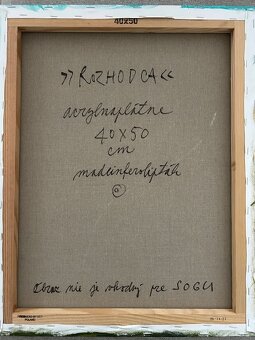 40x50
>> ROZHODCA <<
acrylnaplátne
40x50
cm
madeinferolipták
Obraz nie je vhodný pre SOGU